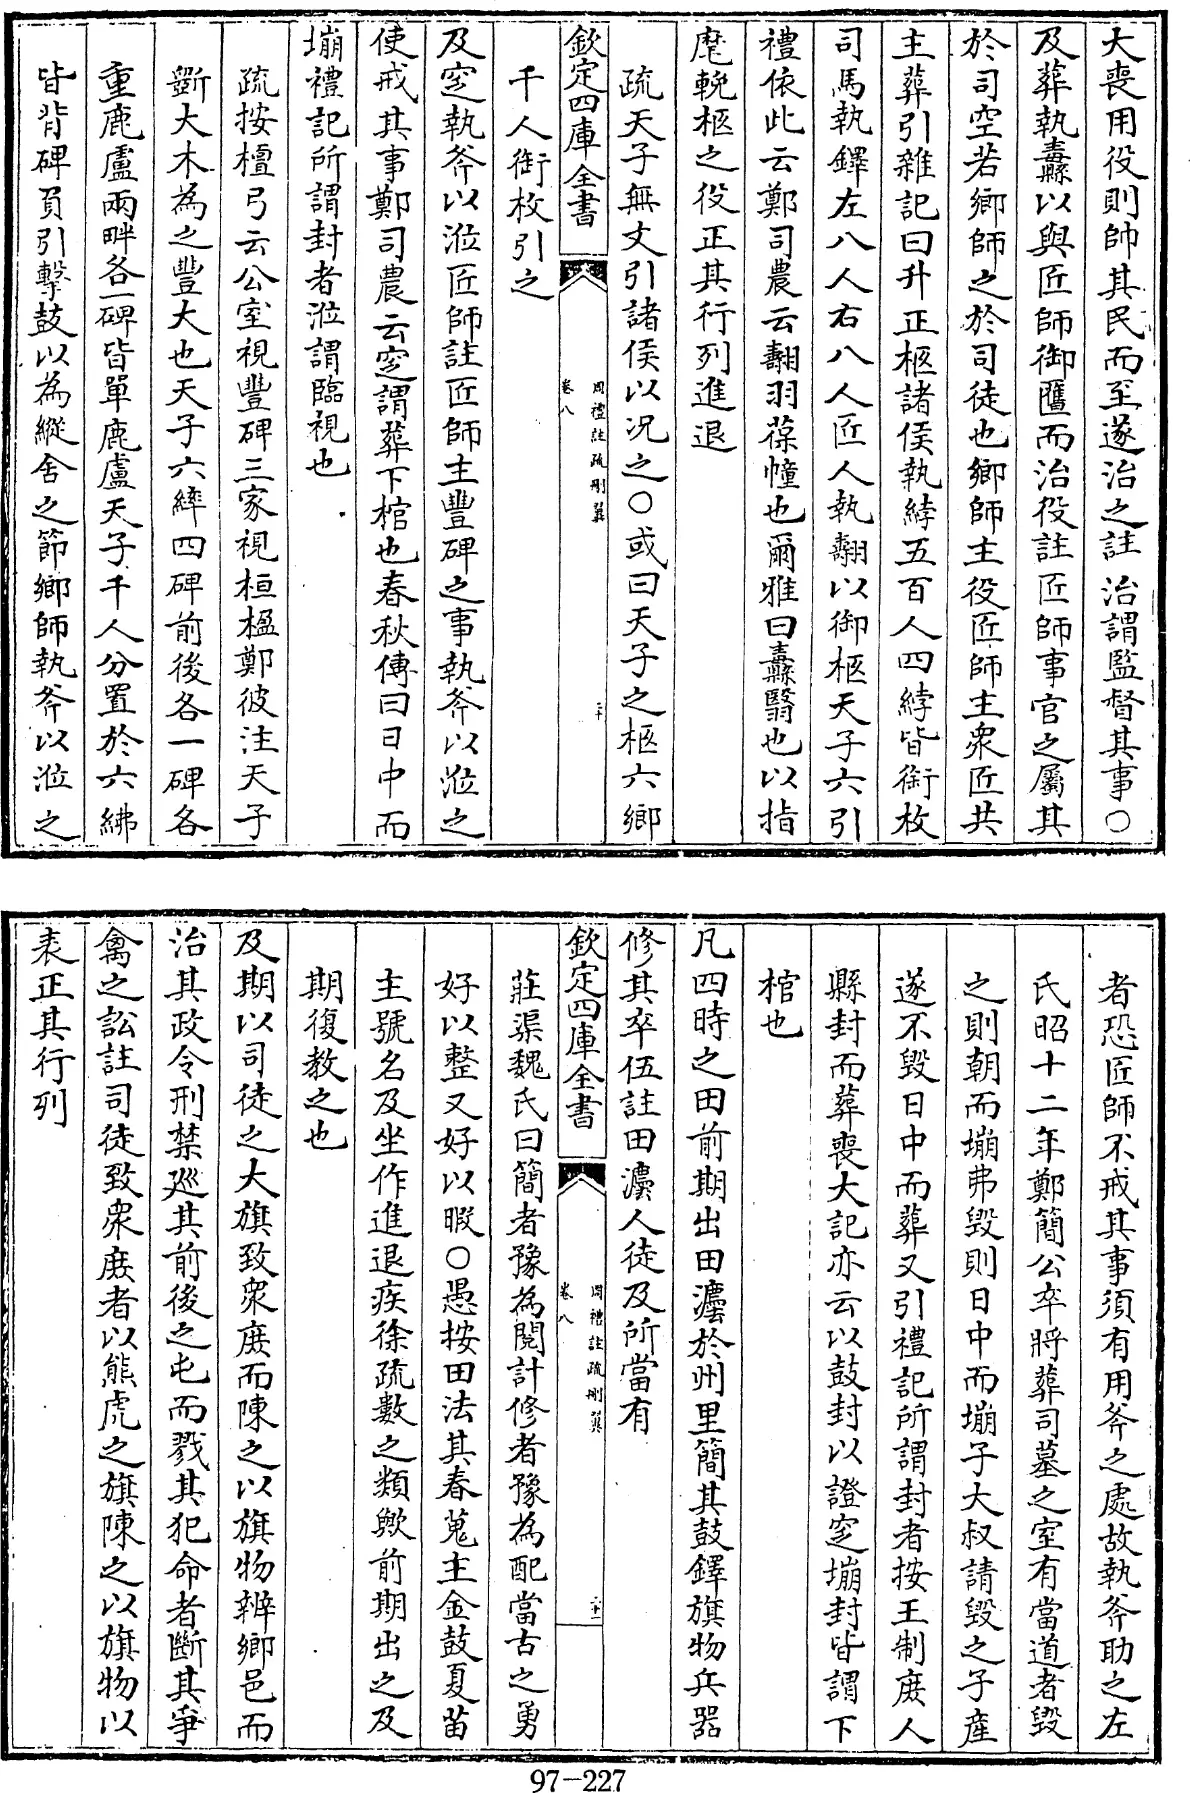 大喪用役則帥其民而至遂治之註　治謂監督其事○
及葬執纛以與匠師御匶而治役註匠師事官之屬其
於司空若鄉師之於司徒也鄉師主役匠師主衆匠共
主葬引雜記曰升正柩諸侯執綍五百人四綍皆銜枚
司馬執鐸左八人右八人匠人執翿以御柩天子六引
禮依此云鄭司農云翿羽葆幢也爾雅曰纛翳也以指
麾輓柩之役正其行列進退
疏天子無文引諸侯以况之○或曰天子之柩六鄉
欽定四庫全書
周禮註疏刪翼
卷八
二十
千人銜枚引之
及窆執斧以涖匠師註匠師主豐碑之事執斧以涖之
使戒其事鄭司農云窆謂葬下棺也春秋傳曰日中而
塴禮記所謂封者涖謂臨視也
疏按檀弓云公室視豐碑三家視桓楹鄭彼注天子
斵大木為之豐大也天子六繂四碑前後各一碑各
重鹿盧兩畔各一碑皆單鹿盧天子千人分置於六紼
皆背碑負引擊鼓以為縱舍之節鄉師執斧以涖之
者恐匠師不戒其事須有用斧之處故執斧助之左
氏昭十二年鄭簡公卒將葬司墓之室有當道者毀
之則朝而塴弗毀則日中而塴子大叔請毀之子産
遂不毀日中而葬又引禮記所謂封者按王制庻人
縣封而葬喪大記亦云以鼓封以證窆塴封皆謂下
棺也
凡四時之田前期出田灋於州里簡其鼓鐸旗物兵器
修其卒伍註田灋人徒及所當有
欽定四庫全書
周禮註疏刪翼
卷八
二十一
莊渠魏氏曰簡者豫為閱計修者豫為配當古之勇
好以整又好以暇○愚按田法其春蒐主金鼓夏苗
主號名及坐作進退疾徐疏數之類歟前期出之及
期復教之也
及期以司徒之大旗致衆庻而陳之以旗物辨鄉邑而
治其政令刑禁廵其前後之屯而戮其犯命者斷其爭
禽之訟註司徒致衆庻者以熊虎之旗陳之以旗物以
表正其行列
97-227